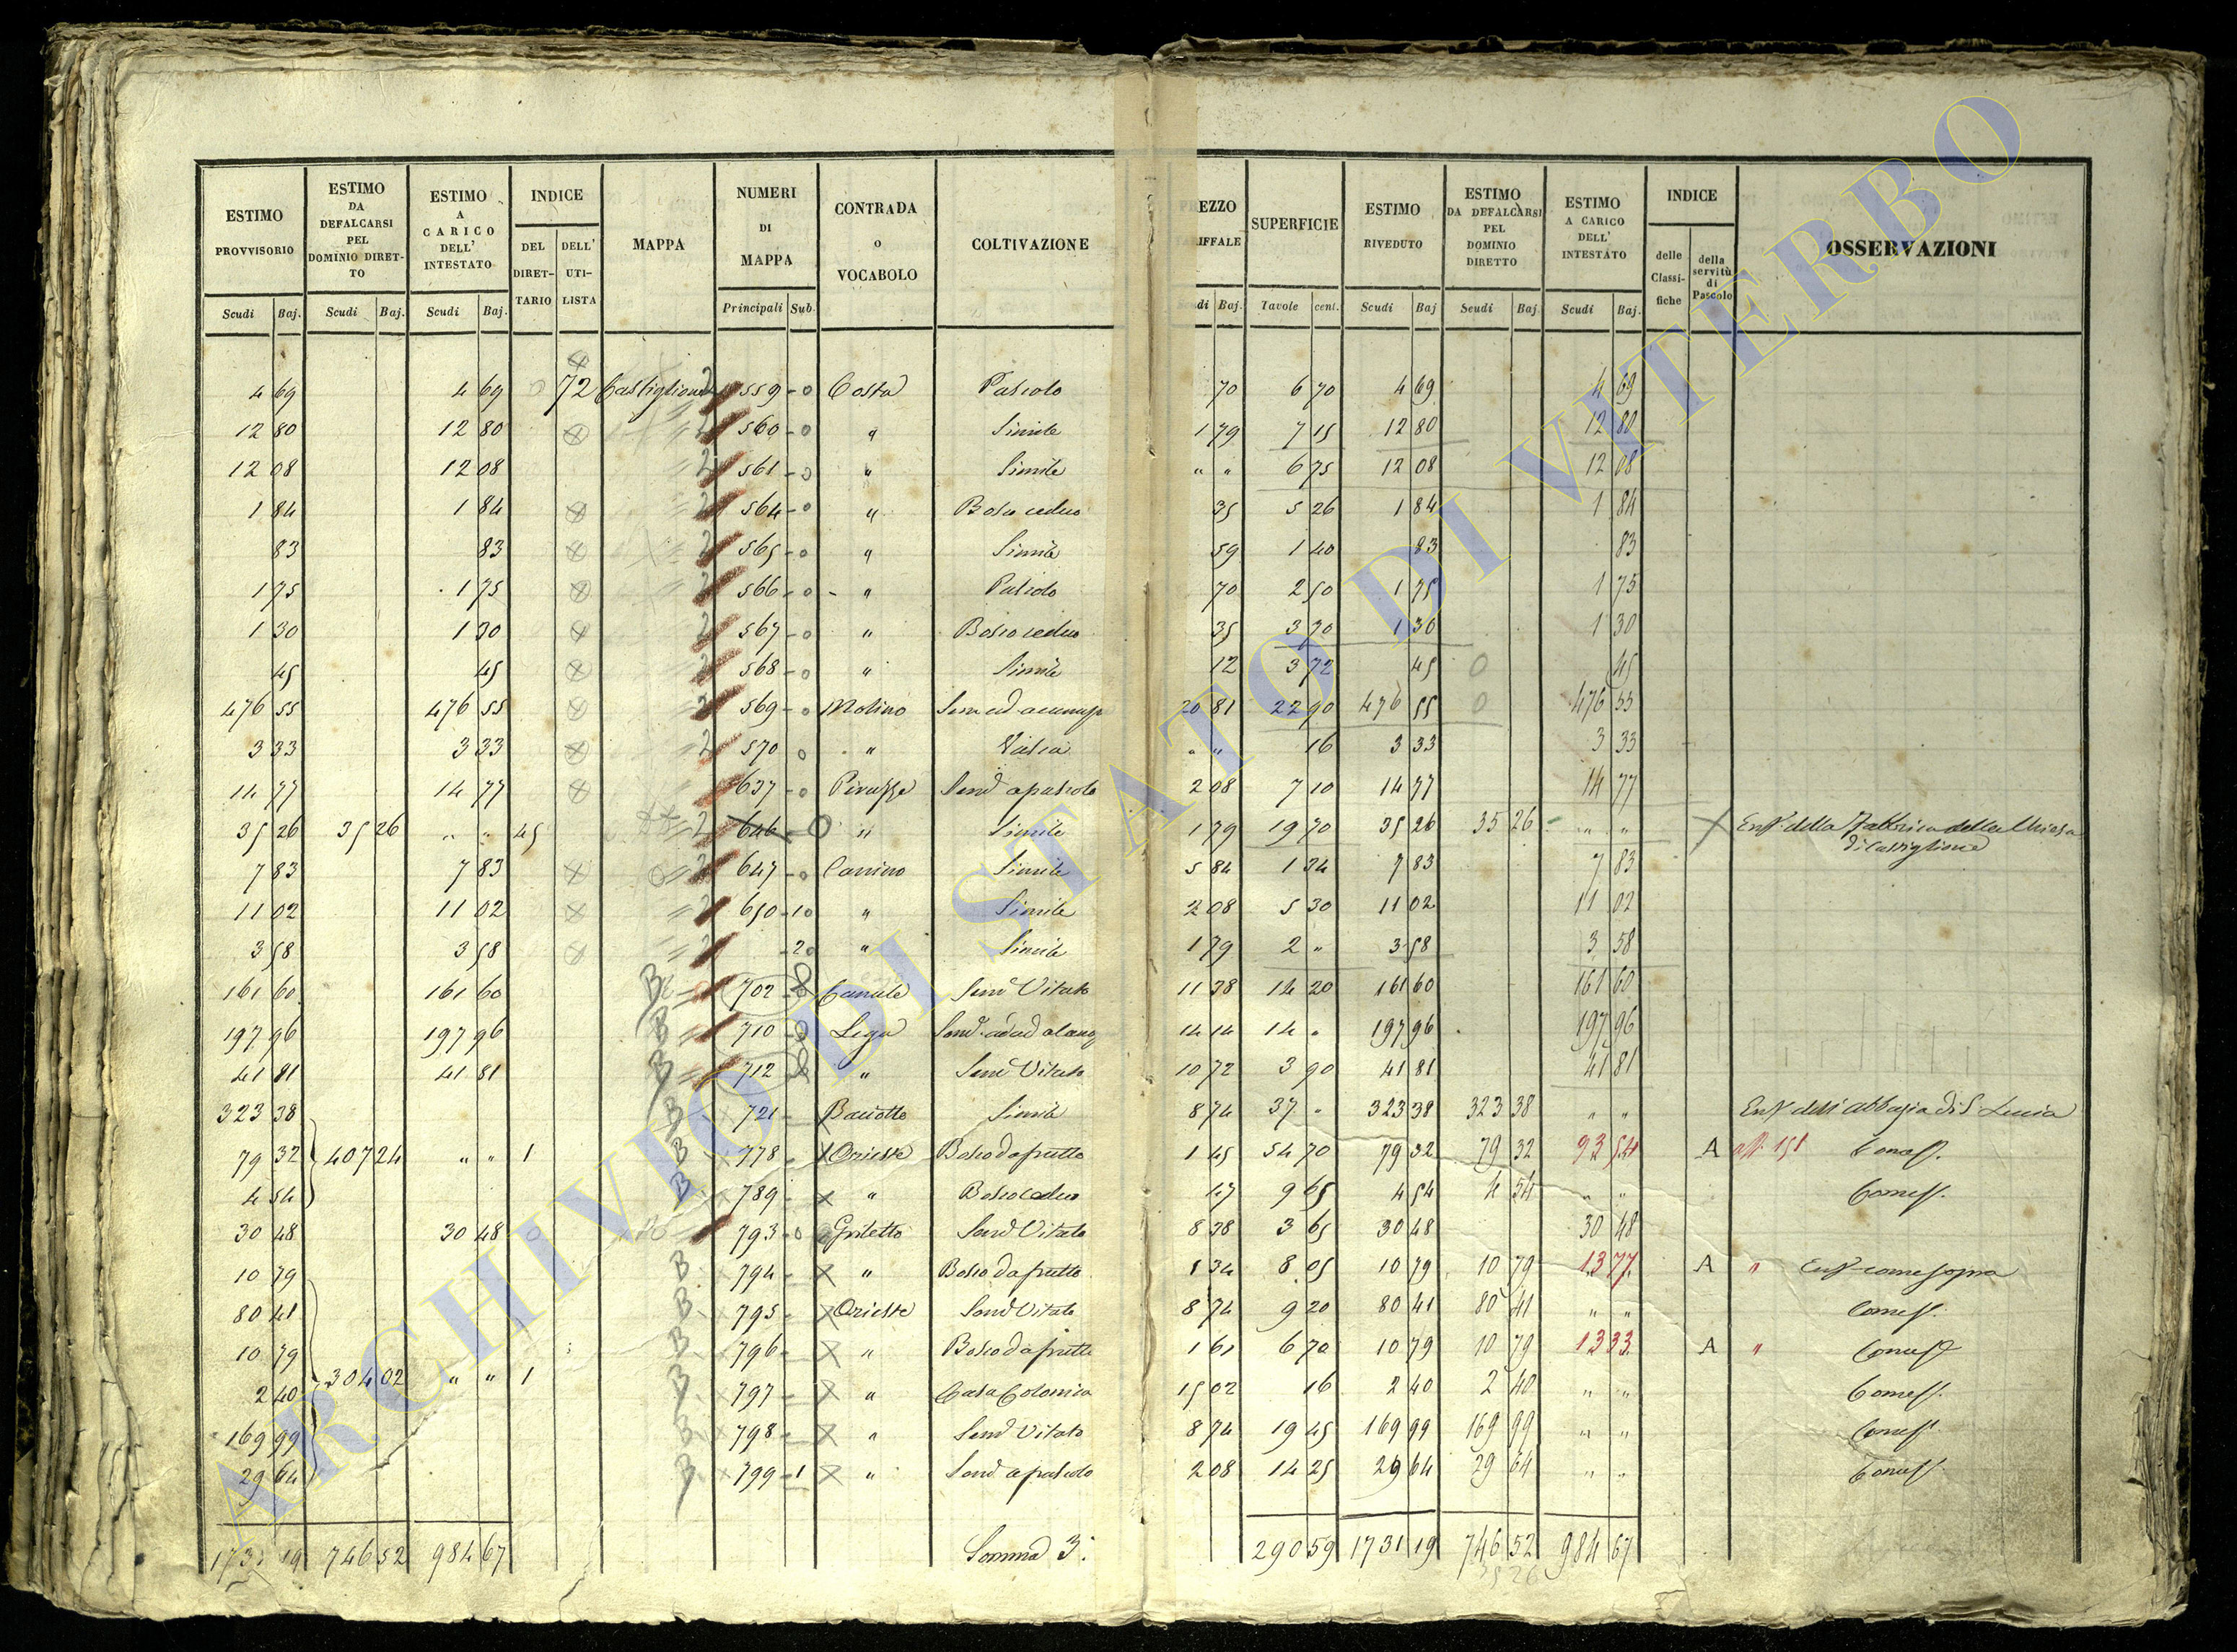 ESTIMO PROVVISORIO | ESTIMO DA DEFALCARSI PEL DOMINIO DIRET-TO | ESTIMO A CARICO DELL' INTESTATO | INDICE | MAPPA | NUMERI DI MAPPA | CONTRADA O VOCABOLO | COLTIVAZIONE | EZZO IFFALE | SUPERFICIE | ESTIMO RIVEDUTO | ESTIMO DA DEFALCARSI PEL DOMINIO DIRETTO | ESTIMO A CARICO DELL' INTESTATO | INDICE | OSSERVAZIONI
DEL DIRET-TARIO | DELL' UTI-LISTA | delle Classi-fiche | della servitù di Pascolo
Scudi | Baj. | Scudi | Baj. | Scudi | Baj. | Principali | Sub. | di | Baj. | Tavole | cent. | Scudi | Baj | Scudi | Baj. | Scudi | Baj.
4 69 | 4 69 | 72 | Castiglione | 2 | 559 - 0 | Costa | Pascolo | 70 | 6 70 | 4 69 | 4 69
12 80 | 12 80 | 2 | 560 - 0 | " | Simile | 1 79 | 7 15 | 12 80 | 12 80
12 08 | 12 08 | 2 | 561 - 0 | " | Simile | " " | 6 75 | 12 08 | 12 08
1 84 | 1 84 | 2 | 564 - 0 | " | Bosco ceduo | 35 | 5 26 | 1 84 | 1 84
83 | 83 | 2 | 565 - 0 | " | Simile | 59 | 1 40 | 83 | 83
1 75 | 1 75 | 2 | 566 - 0 | " | Pascolo | 70 | 2 50 | 1 75 | 1 75
1 30 | 1 30 | 2 | 567 - 0 | " | Bosco ceduo | 35 | 3 70 | 1 30 | 1 30
45 | 45 | 2 | 568 - 0 | " | Simile | 12 | 3 72 | 45 | 0 | 45
476 55 | 476 55 | 2 | 569 - 0 | Molino | 20 81 | 22 90 | 476 55 | 0 | 476 55
3 33 | 3 33 | 2 | 570 0 | " | Vasca | " " | 16 | 3 33 | 3 33
14 77 | 14 77 | 637 - 0 | Semo a pascolo | 2 08 | 7 10 | 14 77 | 14 77
35 26 | 35 26 | " " | 45 | 2 | 646 - 0 | " | Simile | 1 79 | 19 70 | 35 26 | 35 26 | " " | Enf. della Fabbrica della Chiesa
di Castiglione
7 83 | 7 83 | 2 | 647 - 0 | Camino | Simile | 5 84 | 1 34 | 7 83 | 7 83
11 02 | 11 02 | 2 | 650 - 1 0 | " | Simile | 2 08 | 5 30 | 11 02 | 11 02
3 58 | 3 58 | 2 | - 2 0 | " | Simile | 1 79 | 2 " | 3 58 | 3 58
161 60 | 161 60 | B | 702 | Canale | Semo Vitato | 11 38 | 14 20 | 161 60 | 161 60
197 96 | 197 96 | B | 710 | Lega | 14 14 | 14 " | 197 96 | 197 96
41 81 | 41 81 | B | 712 | " | Semo Vitato | 10 72 | 3 90 | 41 81 | 41 81
323 38 | B | 721 | Baciotto | Simile | 8 74 | 37 " | 323 38 | 323 38 | " " | Enf. dell'Abbazia di S. Lucia
79 32 | 407 24 | " " | 1 | B | 778 | X Orieste | Bosco da frutto | 1 45 | 54 70 | 79 32 | 79 32 | 93 54 | A | 151 | Comes.
4 54 | B | 789 | X " | Bosco ceduo | 47 | 9 65 | 4 54 | 4 54 | " " | Comes.
30 48 | 30 48 | 793 - 0 | Grotetto | Semo Vitato | 8 38 | 3 65 | 30 48 | 30 48
10 79 | B | 794 | X " | Bosco da frutto | 1 34 | 8 05 | 10 79 | 10 79 | 13 77 | A | " | Enf. come sopra
80 41 | B | 795 | X Orieste | Semo Vitato | 8 74 | 9 20 | 80 41 | 80 41 | " " | Comes.
10 79 | B | 796 | X " | Bosco da frutto | 1 61 | 6 70 | 10 79 | 10 79 | 13 33 | A | " | Comes.
2 40 | 304 02 | " " | 1 | B | 797 | X " | Casa Colonica | 15 02 | 16 | 2 40 | 2 40 | " " | Comes.
169 99 | B | 798 | X " | Semo Vitato | 8 74 | 19 45 | 169 99 | 169 99 | " " | Comes.
29 64 | B | 799 - 1 | X " | Semo a pascolo | 2 08 | 14 25 | 29 64 | 29 64 | " " | Comes.
1731 19 | 746 52 | 984 67 | Somma 3. | 290 59 | 1731 19 | 746 52 | 984 67
35 26
ARCHIVIO DI STATO DI VITERBO